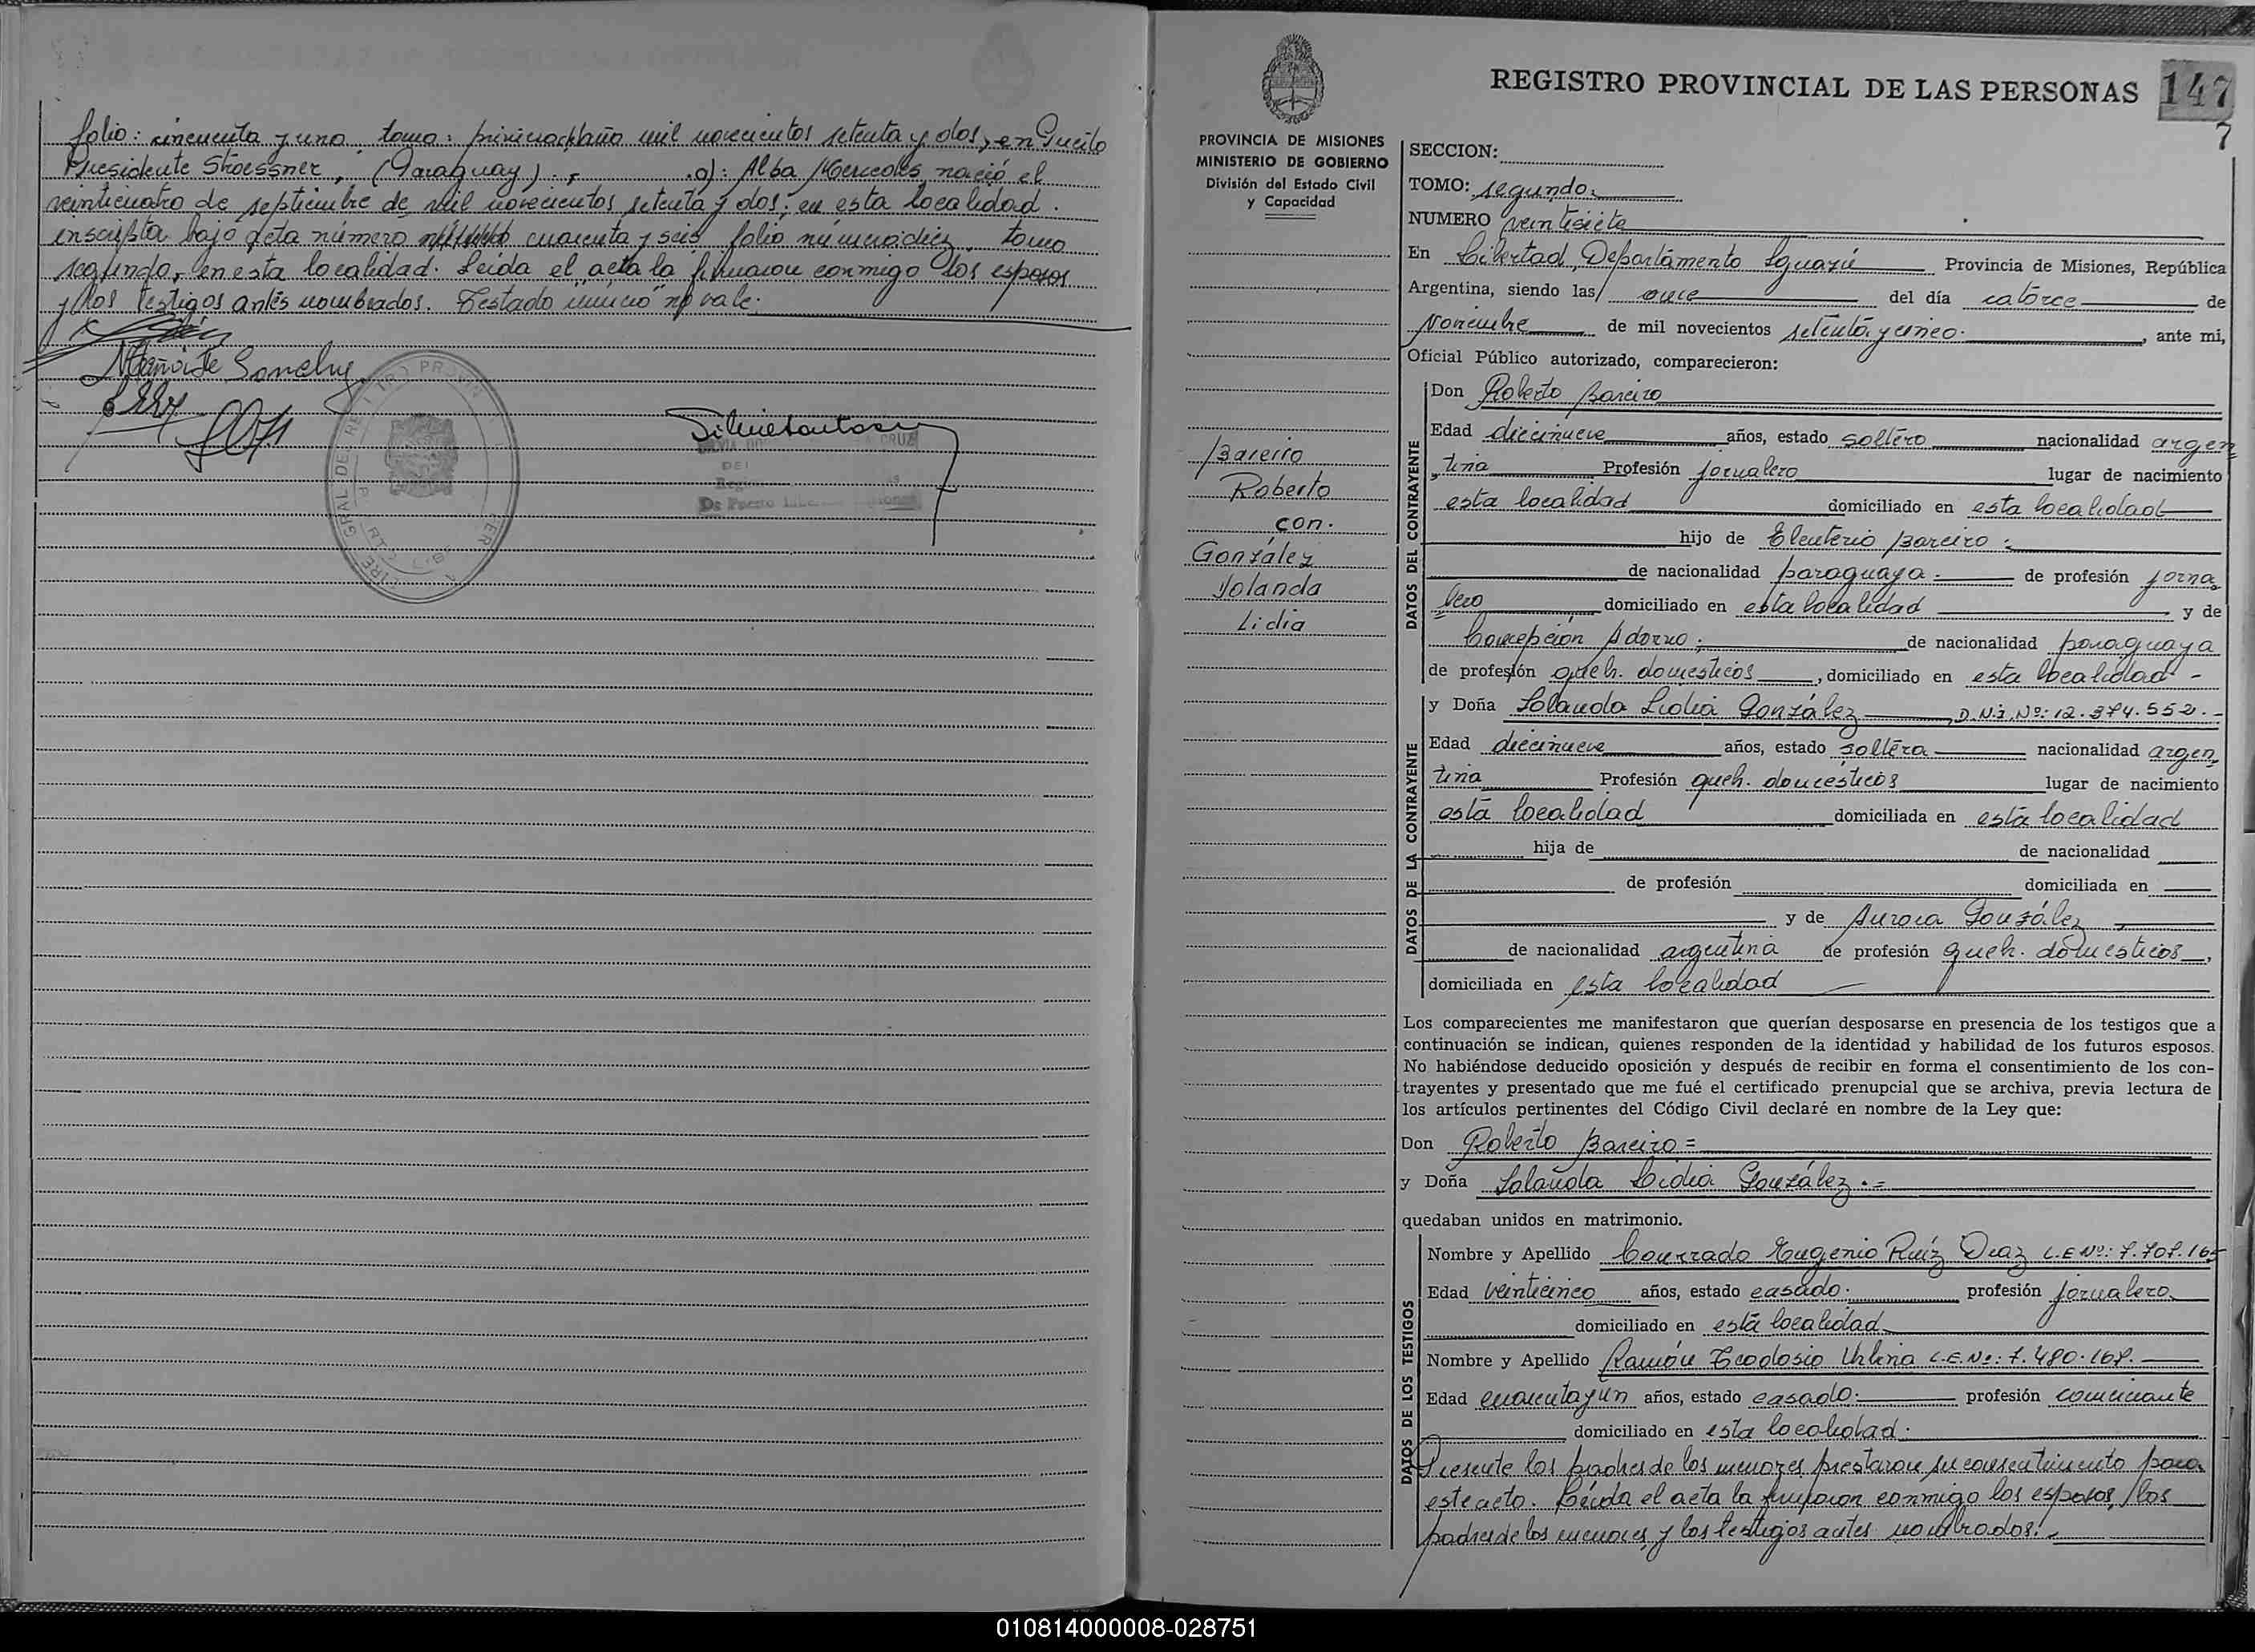 folio: cincuenta y uno, tomo: primero del año mil novecientos setenta y dos, en Puerto
Presidente Stroessner, (Paraguay).; .a): Alba Mercedes, nació el
veinticuatro de septiembre de mil novecientos setenta y dos; en esta localidad.
inscripta bajo acta número cuarenta y seis, folio número diez, tomo
segundo, en esta localidad. Leída el acta la firmaron conmigo los esposos
y los testigos antes nombrados. Testado "número" no vale.
REGISTRO PROVINCIAL DE LAS PERSONAS 147
7
PROVINCIA DE MISIONES
MINISTERIO DE GOBIERNO
División del Estado Civil
y Capacidad
Bareiro
Roberto
con.
González
Yolanda
Lidia
SECCION:
TOMO: segundo.
NUMERO veintisiete
En Libertad, Departamento Iguazú Provincia de Misiones, República
Argentina, siendo las once del día catorce de
Noviembre de mil novecientos setenta y cinco. , ante mi,
Oficial Público autorizado, comparecieron:
DATOS DEL CONTRAYENTE
Don Roberto Bareiro
Edad diecinueve años, estado soltero nacionalidad argen
tina Profesión jornalero lugar de nacimiento
esta localidad domiciliado en esta localidad
hijo de Eleuterio Bareiro
de nacionalidad paraguaya de profesión jorna
lero domiciliado en esta localidad y de
Concepción Adorno; de nacionalidad paraguaya
de profesión queh. domesticos , domiciliado en esta localidad -
DATOS DE LA CONTRAYENTE
y Doña Iolanda Lidia González D.N.I. Nº: 12.374.552.-
Edad diecinueve años, estado soltera nacionalidad argen
tina Profesión queh. domésticos lugar de nacimiento
esta localidad domiciliada en esta localidad
hija de de nacionalidad
de profesión domiciliada en
y de Aurora González
de nacionalidad argentina de profesión queh. domesticos ,
domiciliada en esta localidad
Los comparecientes me manifestaron que querían desposarse en presencia de los testigos que a
continuación se indican, quienes responden de la identidad y habilidad de los futuros esposos.
No habiéndose deducido oposición y después de recibir en forma el consentimiento de los con-
trayentes y presentado que me fué el certificado prenupcial que se archiva, previa lectura de
los artículos pertinentes del Código Civil declaré en nombre de la Ley que:
Don Roberto Bareiro =
y Doña Iolanda Lidia González .=
quedaban unidos en matrimonio.
DATOS DE LOS TESTIGOS
Nombre y Apellido Conrrado Eugenio Ruíz Diaz L.E Nº: 7.707.165
Edad veinticinco años, estado casado. profesión jornalero
domiciliado en esta localidad
Nombre y Apellido Ramón Teodosio Urbina L.E. Nº: 7.480.167.
Edad cuarenta y un años, estado casado. profesión comerciante
domiciliado en esta localidad.
Presente los padres de los menores prestaron su consentimiento para
este acto. Leída el acta la firmaron conmigo los esposos, los
padres de los menores, y los testigos antes nombrados.
010814000008-028751